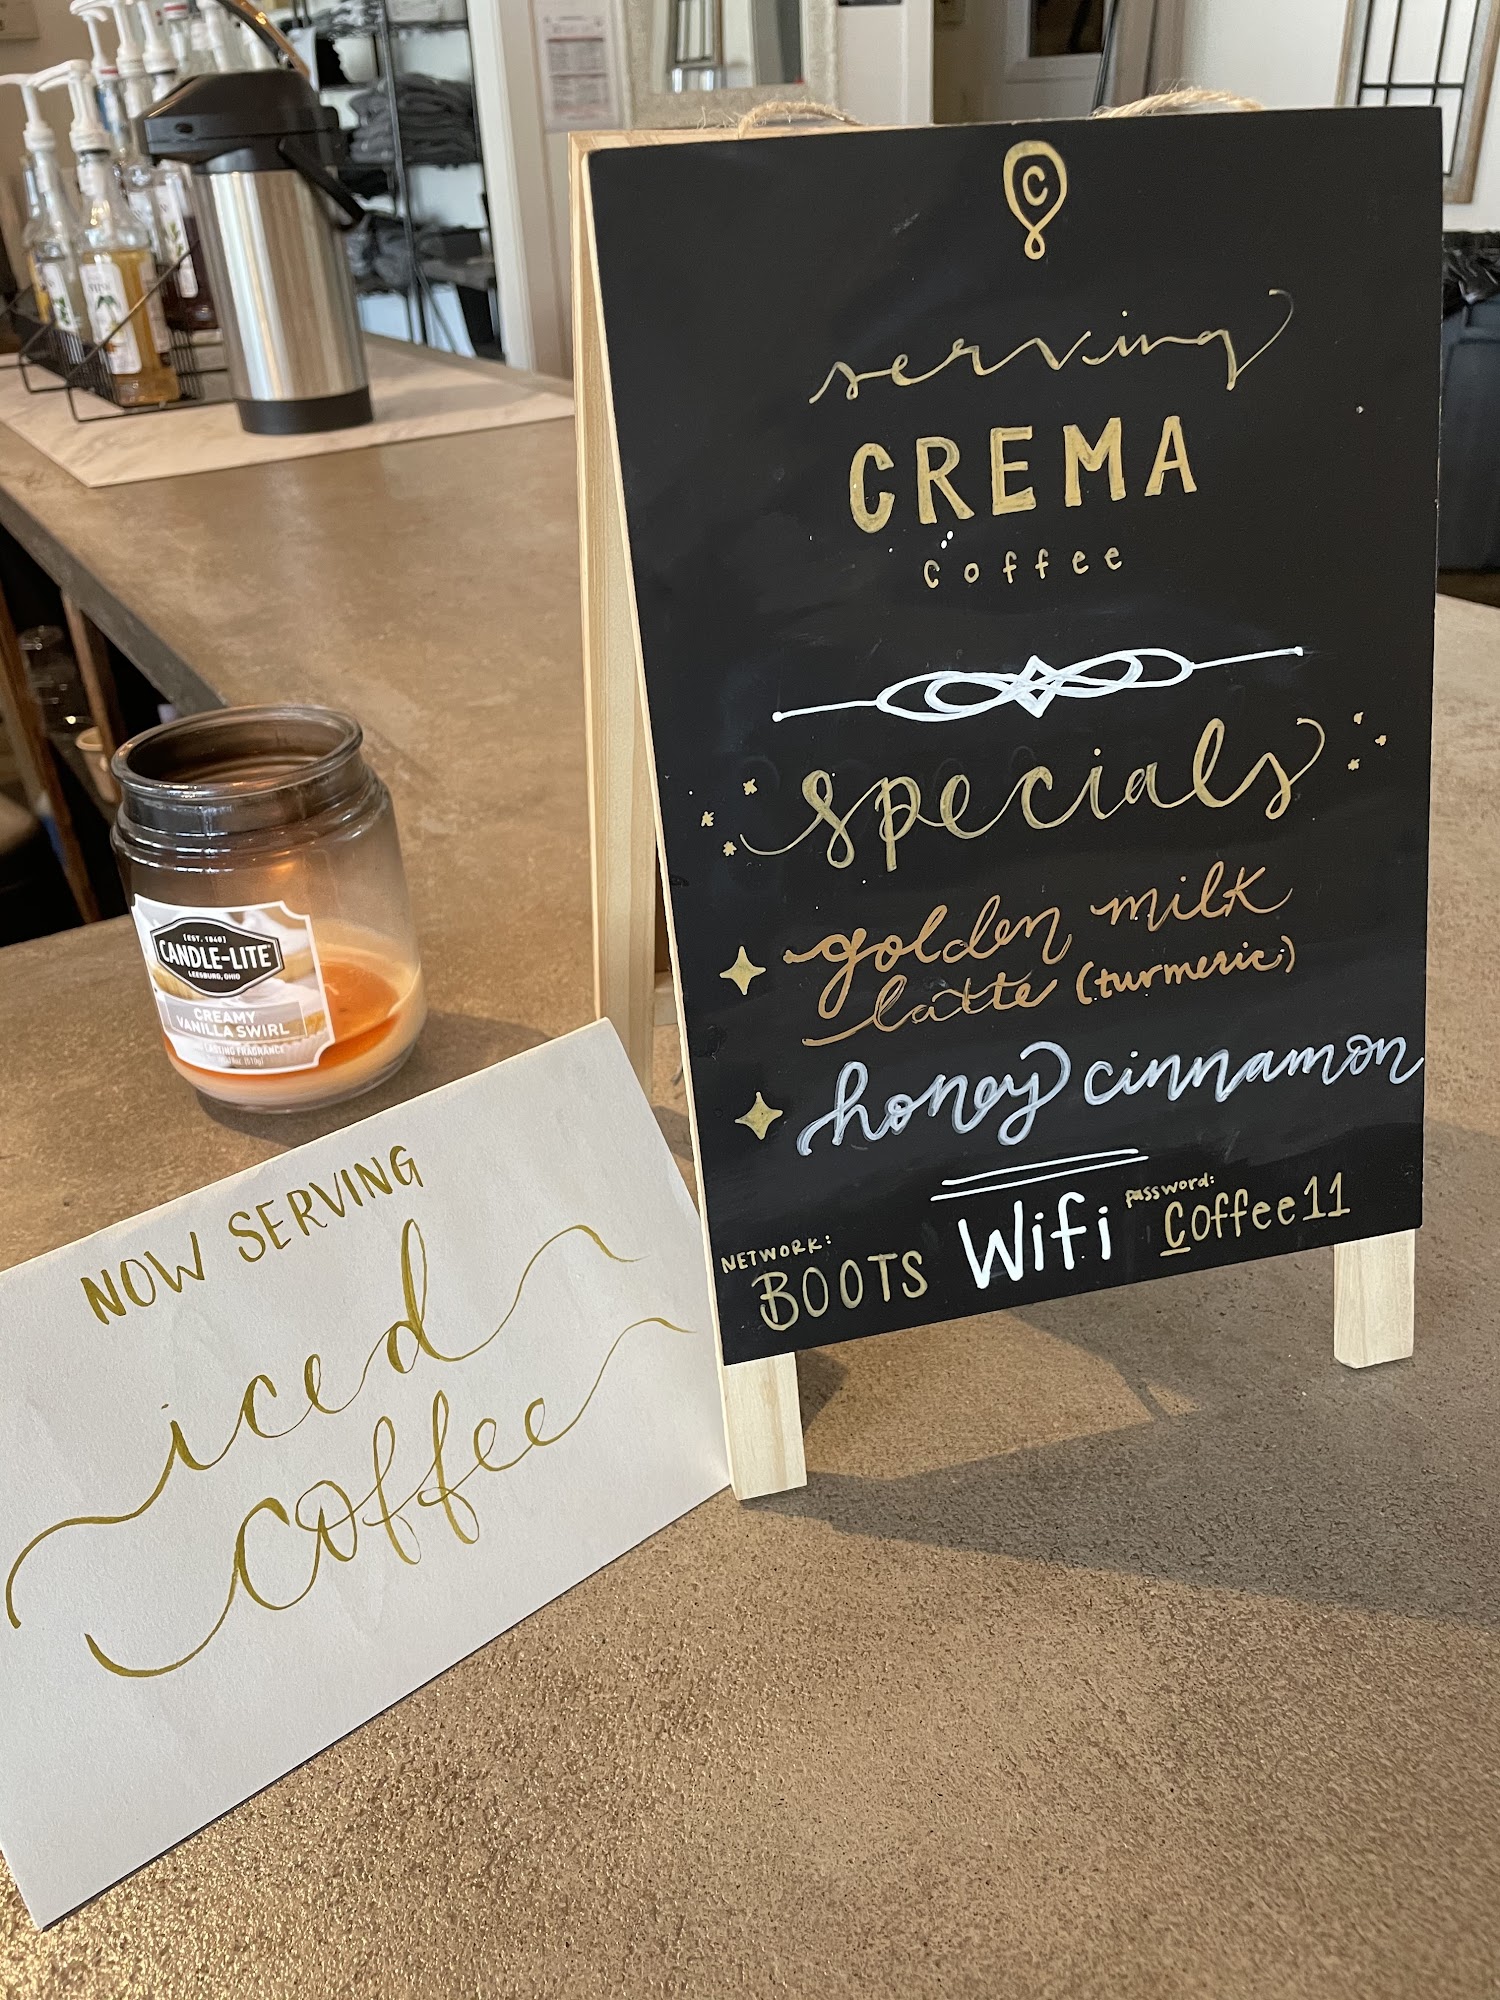 C
serving
CREMA
coffee
specials
golden milk
latte (turmeric)
honey cinnamon
NETWORK:
BOOTS
Wifi
password:
Coffee11
[EST. 1840]
CANDLE-LITE
LEESBURG, OHIO
CREAMY
VANILLA SWIRL
LASTING FRAGRANCE
NOW SERVING
iced
coffee